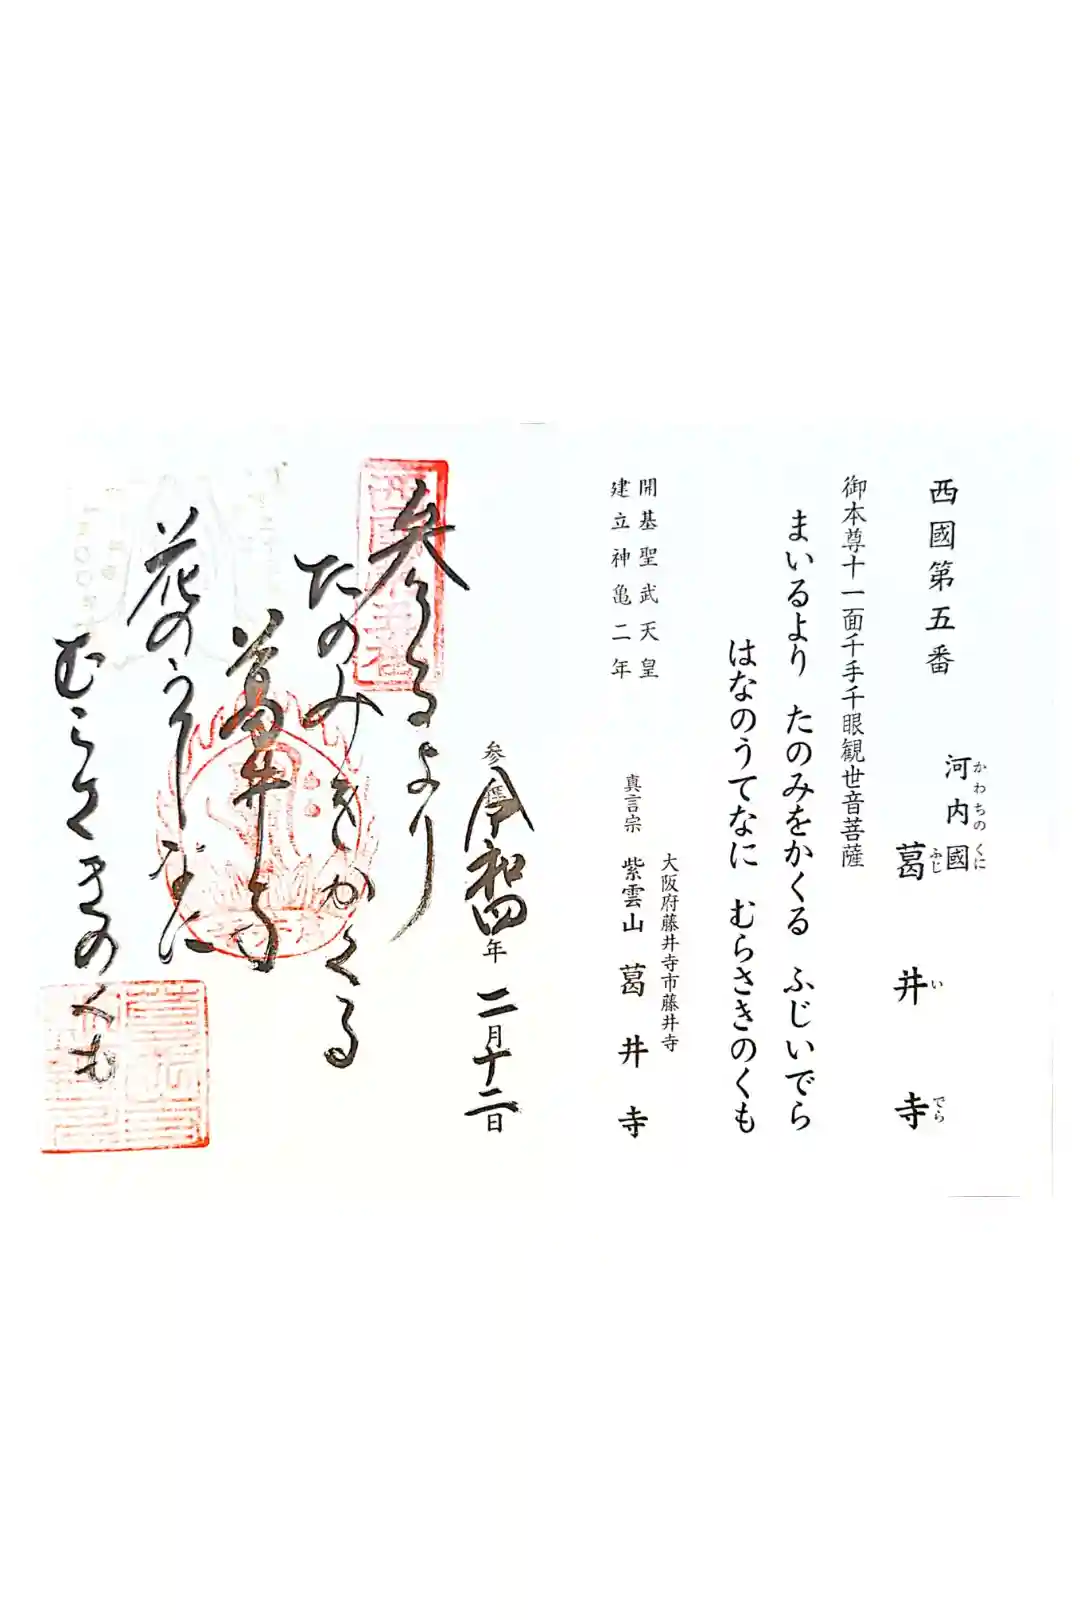 西國第五番
河内國
かわちのくに
葛井寺
ふじいでら
御本尊十一面千手千眼観世音菩薩
まいるより たのみをかくる ふじいでら
はなのうてなに むらさきのくも
開基聖武天皇
建立神亀二年
大阪府藤井寺市藤井寺
真言宗 紫雲山 葛井寺
参拝 令和四年二月十二日
参るより
たのみをかくる
葛井寺
花のうてなに
むらさきのくも